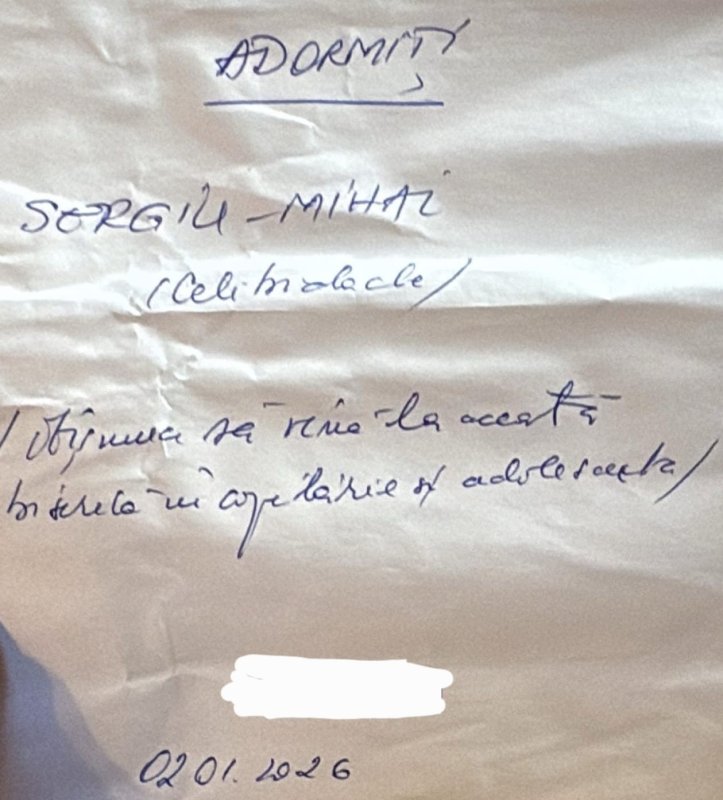 ADORMIȚI
SERGIU-MIHAI
(Celibidache)
(obișnuia să vină la această
biserică în copilărie și adolescență)
02 01. 2026